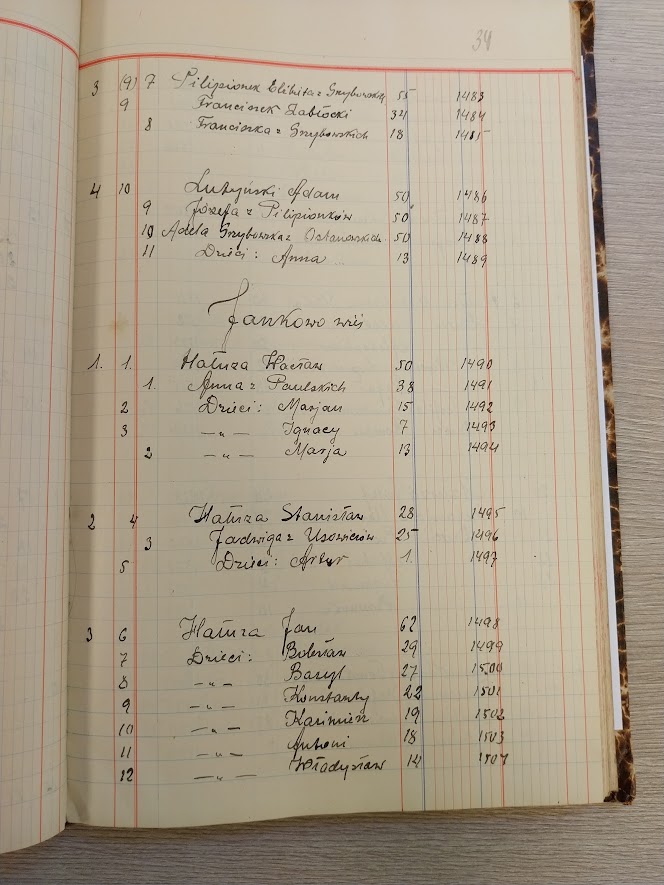 34
3 (9) 7 Pilipionek Elibieta z Grzybowskich 55 1483
9 Franciszek Zabłocki 34 1484
8 Franciszka z Grzybowskich 18 1485
4 10 Lutyński Adam 50 1486
9 Józefa z Pilipionków 50 1487
10 Adela Grzybowska z 50 1488
11 Dzieci: Anna 13 1489
Jankowo wieś
1. 1. Hałuza Wacław 50 1490
1. Anna z Paulskich 38 1491
2 Dzieci: Marjan 15 1492
3 —„— Ignacy 7 1493
2 —„— Marja 13 1494
2 4 Hałuza Stanisław 28 1495
3 Jadwiga z 25 1496
5 Dzieci: Artur 1. 1497
3 6 Hałuza Jan 62 1498
7 Dzieci: Bolesław 29 1499
8 —„— Bazyl 27 1500
9 Konstanty 22 1501
10 —„— Kazimierz 19 1502
11 —„— Antoni 18 1503
12 —„— Władysław 14 1504